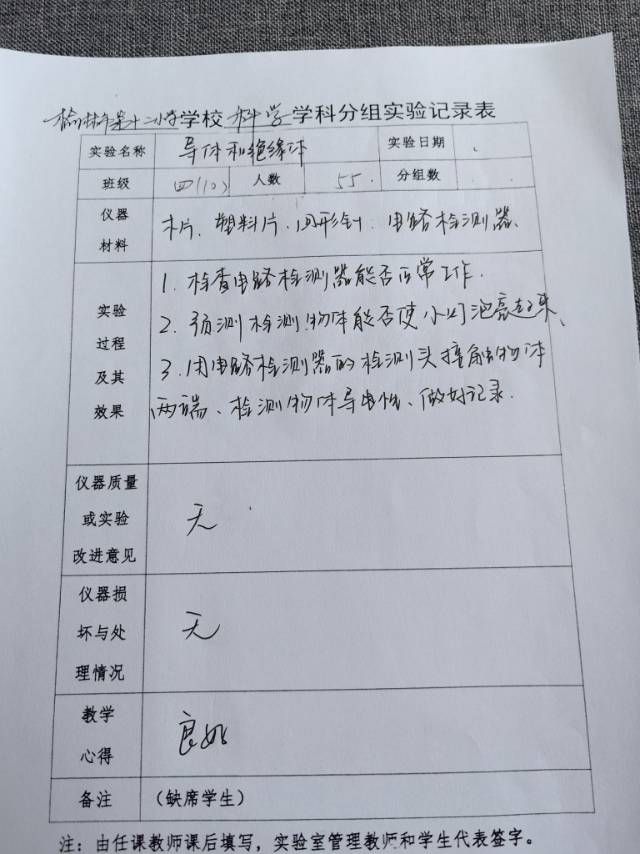 榆林市第十二小学学校 科学 学科分组实验记录表
实验名称 导体和绝缘体 实验日期
班级 四(10) 人数 55. 分组数
仪器材料 木片、塑料片、回形针、电路检测器、
实验过程及其效果
1. 检查电路检测器能否正常工作.
2. 预测检测物体能否使小灯泡亮起来、
3. 用电路检测器的检测头接触物体
两端、检测物体导电性、做好记录.
仪器质量或实验改进意见 无
仪器损坏与处理情况 无
教学心得 良好
备注 (缺席学生)
注:由任课教师课后填写,实验室管理教师和学生代表签字。